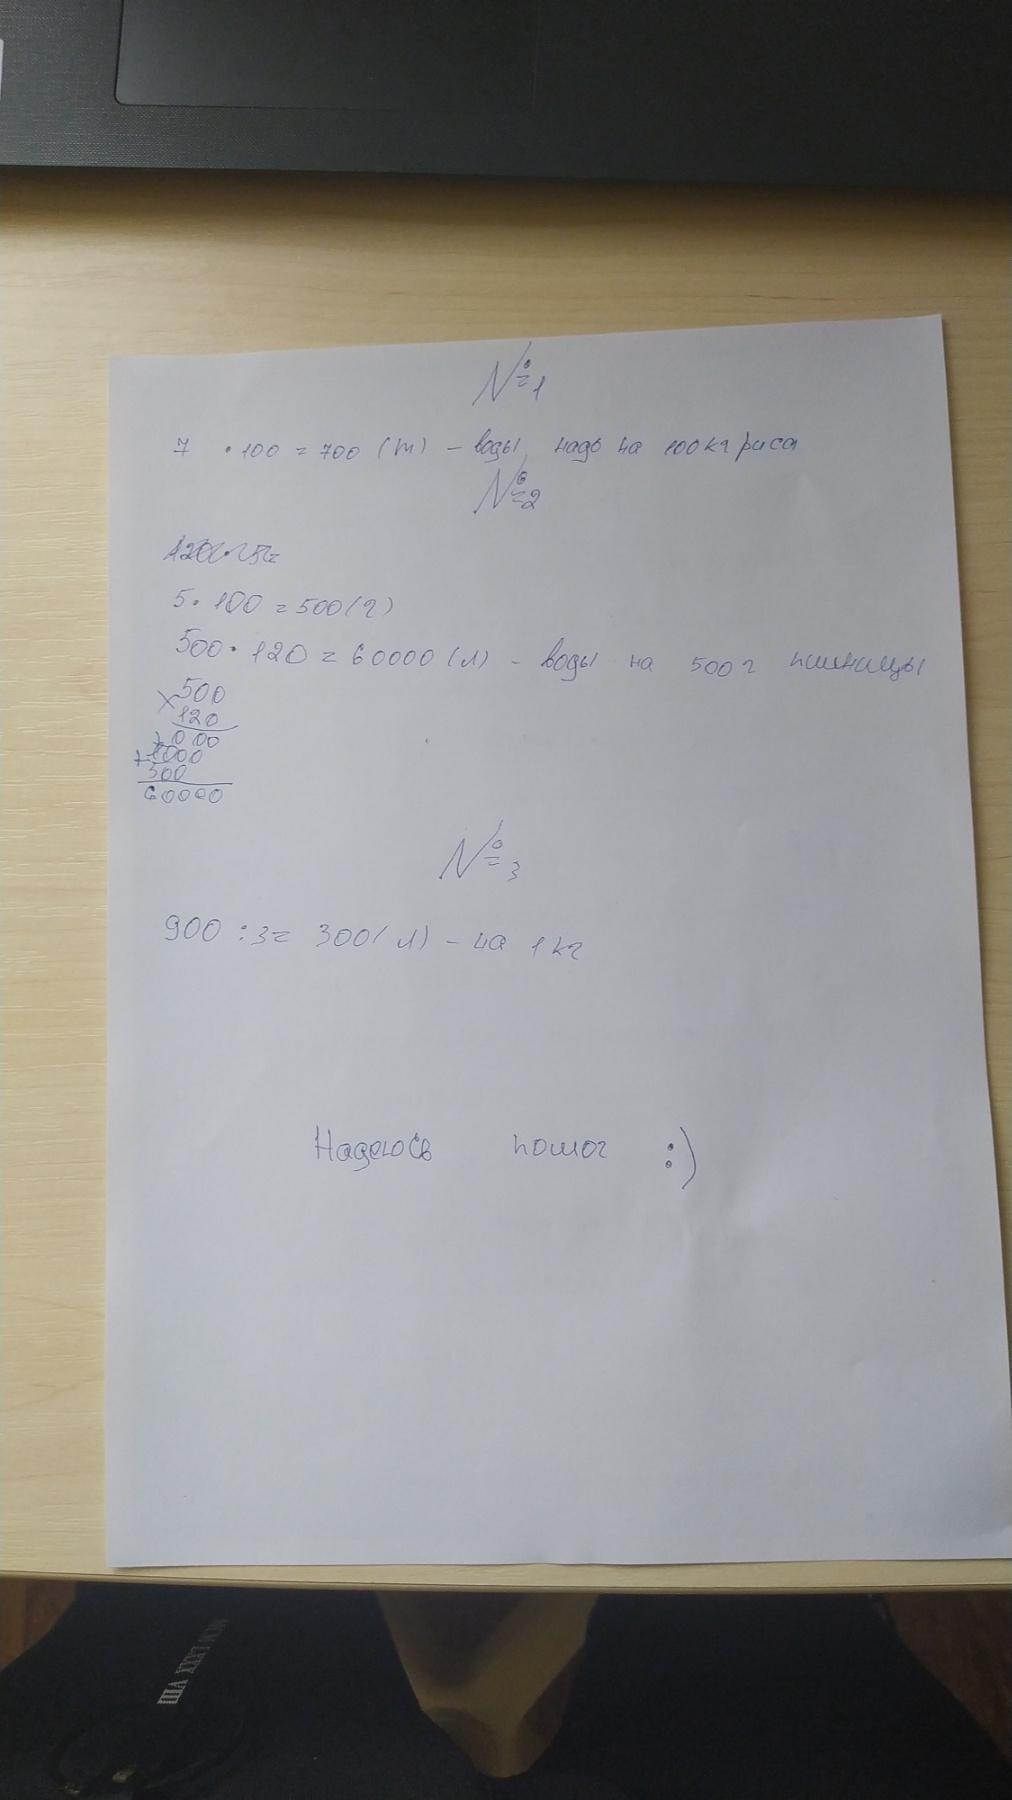 №1
7 · 100 = 700 (т) – воды надо на 100кг риса
№2
5 · 100 = 500(г)
500 · 120 = 60000 (л) – воды на 500г пшеницы
× 500
120
+ 000
+ 1000
500
60000
№3
900 : 3 = 300( л) – на 1кг
Надеюсь помог :)